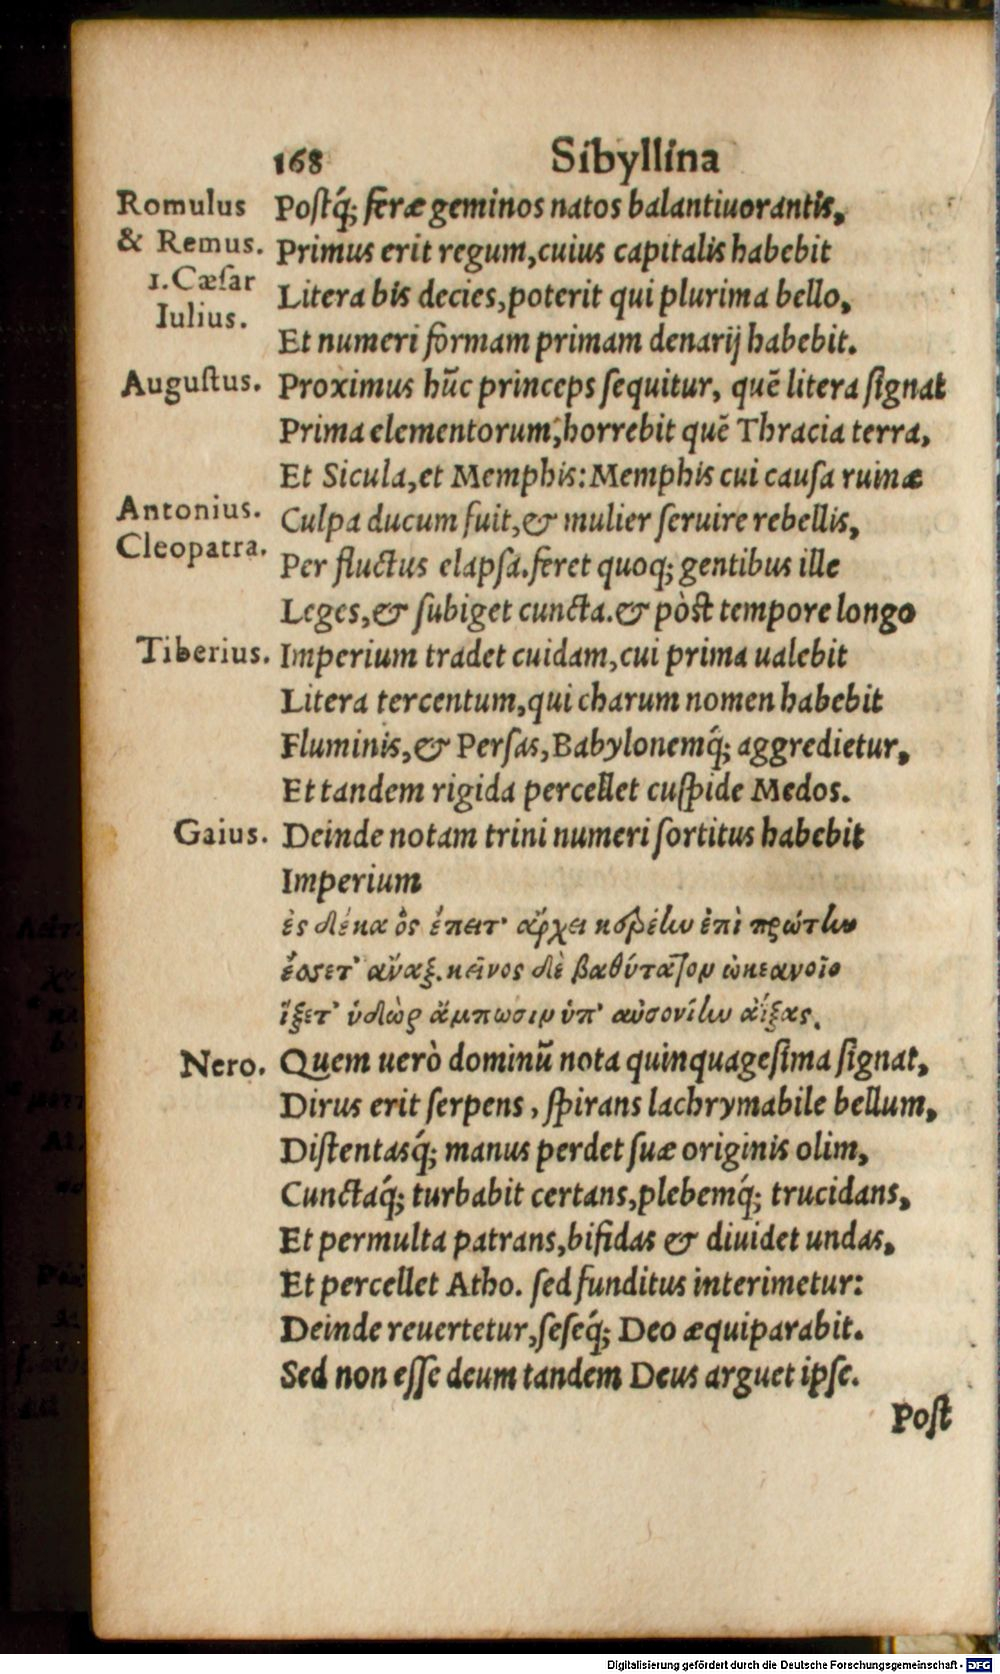 168 Sibyllina
Romulus Postq́; feræ geminos natos balantiuorantis,
& Remus. Primus erit regum, cuius capitalis habebit
1. Cæſar
Litera bis decies, poterit qui plurima bello,
Iulius.
Et numeri formam primam denarij habebit.
Auguſtus. Proximus hũc princeps ſequitur, quẽ litera ſignat
Prima elementorum, horrebit quẽ Thracia terra,
Et Sicula, et Memphis: Memphis cui cauſa ruinæ
Antonius. Culpa ducum fuit, & mulier ſeruire rebellis,
Cleopatra. Per fluctus elapſa. feret quoq; gentibus ille
Leges, & ſubiget cuncta. & pòſt tempore longo
Tiberius. Imperium tradet cuidam, cui prima ualebit
Litera tercentum, qui charum nomen habebit
Fluminis, & Perſas, Babylonemq́; aggredietur,
Et tandem rigida percellet cuſpide Medos.
Gaius. Deinde notam trini numeri ſortitus habebit
Imperium
ἐς δέκα ὃς ἔπειτ' ἄρχει κορέην ἐπὶ πρώτην
ἔσσετ' ἄναξ. κεῖνος δὲ βαθύτατον ὠκεανοῖο
ἵξετ' ὑδὼρ ἄμπωσιν ὑπ' αὐσονίην ἀΐξας.
Nero. Quem uerò dominũ nota quinquageſima ſignat,
Dirus erit ſerpens, ſpirans lachrymabile bellum,
Diſtentasq́; manus perdet ſuæ originis olim,
Cunctaq́; turbabit certans, plebemq́; trucidans,
Et permulta patrans, bifidas & diuidet undas,
Et percellet Atho. ſed funditus interimetur:
Deinde reuertetur, ſeſeq́; Deo æquiparabit.
Sed non eſſe deum tandem Deus arguet ipſe.
Poſt
Digitalisierung gefördert durch die Deutsche Forschungsgemeinschaft - DFG